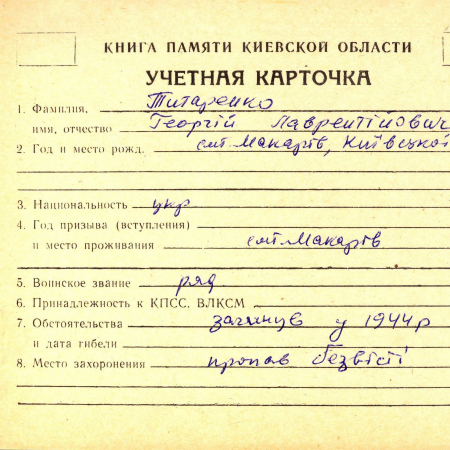 КНИГА ПАМЯТИ КИЕВСКОЙ ОБЛАСТИ
УЧЕТНАЯ КАРТОЧКА
1. Фамилия, Титаренко
имя, отчество Георгій Лаврентійович
2. Год и место рожд. смт. Макарів, Київської
3. Национальность укр.
4. Год призыва (вступления)
и место проживания смт. Макарів
5. Воинское звание ряд.
6. Принадлежность к КПСС, ВЛКСМ
7. Обстоятельства загинув у 1944 р
и дата гибели
8. Место захоронения пропав безвісті